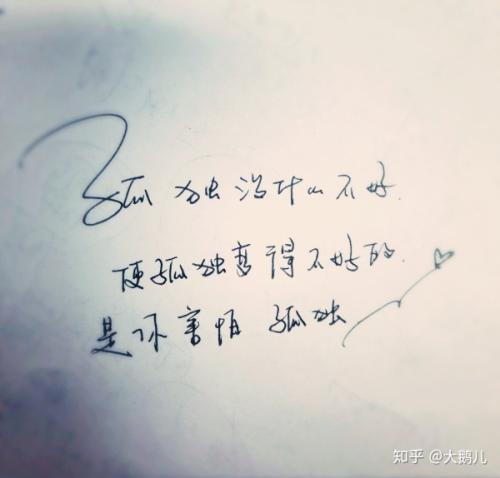 孤独没什么不好.
使孤独变得不好的.
是你害怕孤独
知乎 @大鹅儿